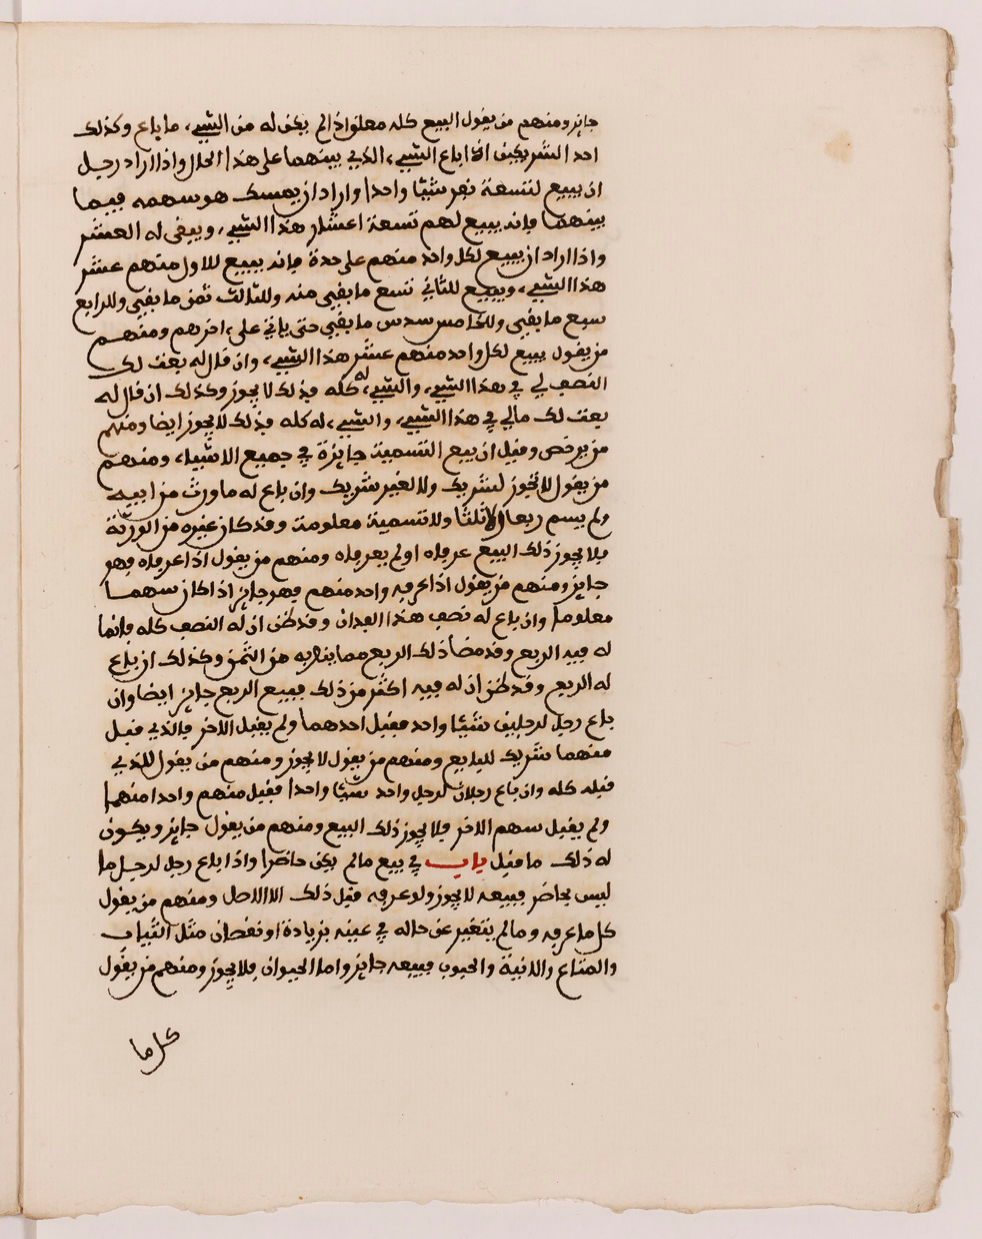 جايز ومنهم من يقول البيع كله معلو اذا لم يكن له من الشيء ما باع وكذلك
احد الشريكين اذا باع الشيء الذي بينهما على هذا الحال واذا اراد رجل
ان يبيع لتسعة نفر شيئا واحدا واراد ان يمسك هو سهمه فيما
بينهما فانه يبيع لهم تسعة اعشار هذا الشيء ويبقى له العشر
واذا اراد ان يبيع لكل واحد منهم على حدة فانه يبيع للاول منهم عشر
هذا الشيء ويبيع للثاني تسع ما بقي منه وللثالث ثمن ما بقي وللرابع
سبع ما بقي وللخامس سدس ما بقي حتى ياتي على اخرهم ومنهم
من يقول يبيع لكل واحد منهم عشر هذا الشيء وان قال له بعت لك
النصف لي في هذا الشيء والشيء له كله فذلك لا يجوز وكذلك ان قال له
بعت لك مالي في هذا الشيء والشيء له كله فذلك لا يجوز ايضا ومنهم
من يرخص وقيل ان بيع التسمية جايزة في جميع الاشياء ومنهم
من يقول لا تجوز لشريك ولا لغير شريك وان باع له ما ورث من ابيه
ولم يسم ربعا ولا ثلثا ولا تسمية معلومة وقد كان غيره من الورثة
فلا يجوز ذلك البيع عرفاه او لم يعرفاه ومنهم من يقول اذا عرفاه فهو
جايز ومنهم من يقول اذا عرفه واحد منهم فهو جايز اذا كان سهما
معلوما وان باع له نصف هذا الفدان وقد ظن ان له النصف كله فانما
له فيه الربع وقد مضا ذلك الربع مما ينا به من الثمن وكذلك ان باع
له الربع وقد ظن ان له فيه اكثر من ذلك فبيع الربع جايز ايضا وان
باع رجل لرجلين شيئا واحد فقبل احدهما ولم يقبل الاخر فالذي قبل
منهما شريك للبايع ومنهم من يقول لا يجوز ومنهم من يقول للذي
قبله كله وان باع رجلان لرجل واحد شيئا واحدا فقبل منهم واحدا منهما
ولم يقبل سهم الاخر فلا يجوز ذلك البيع ومنهم من يقول جايز ويكون
له ذلك ما قبل باب في بيع مالم يكن حاضرا واذا باع رجل لرجل ما
ليس بحاضر فبيعه لا يجوز ولو عرفه قبل ذلك الا الاصل ومنهم من يقول
كل ما عرفه ومالم يتغير عن حاله في عينه بزيادة او نقصان مثل الثياب
والمتاع والانية والحبوب فبيعه جايز واما الحيوان فلا يجوز ومنهم من يقول
كل ما